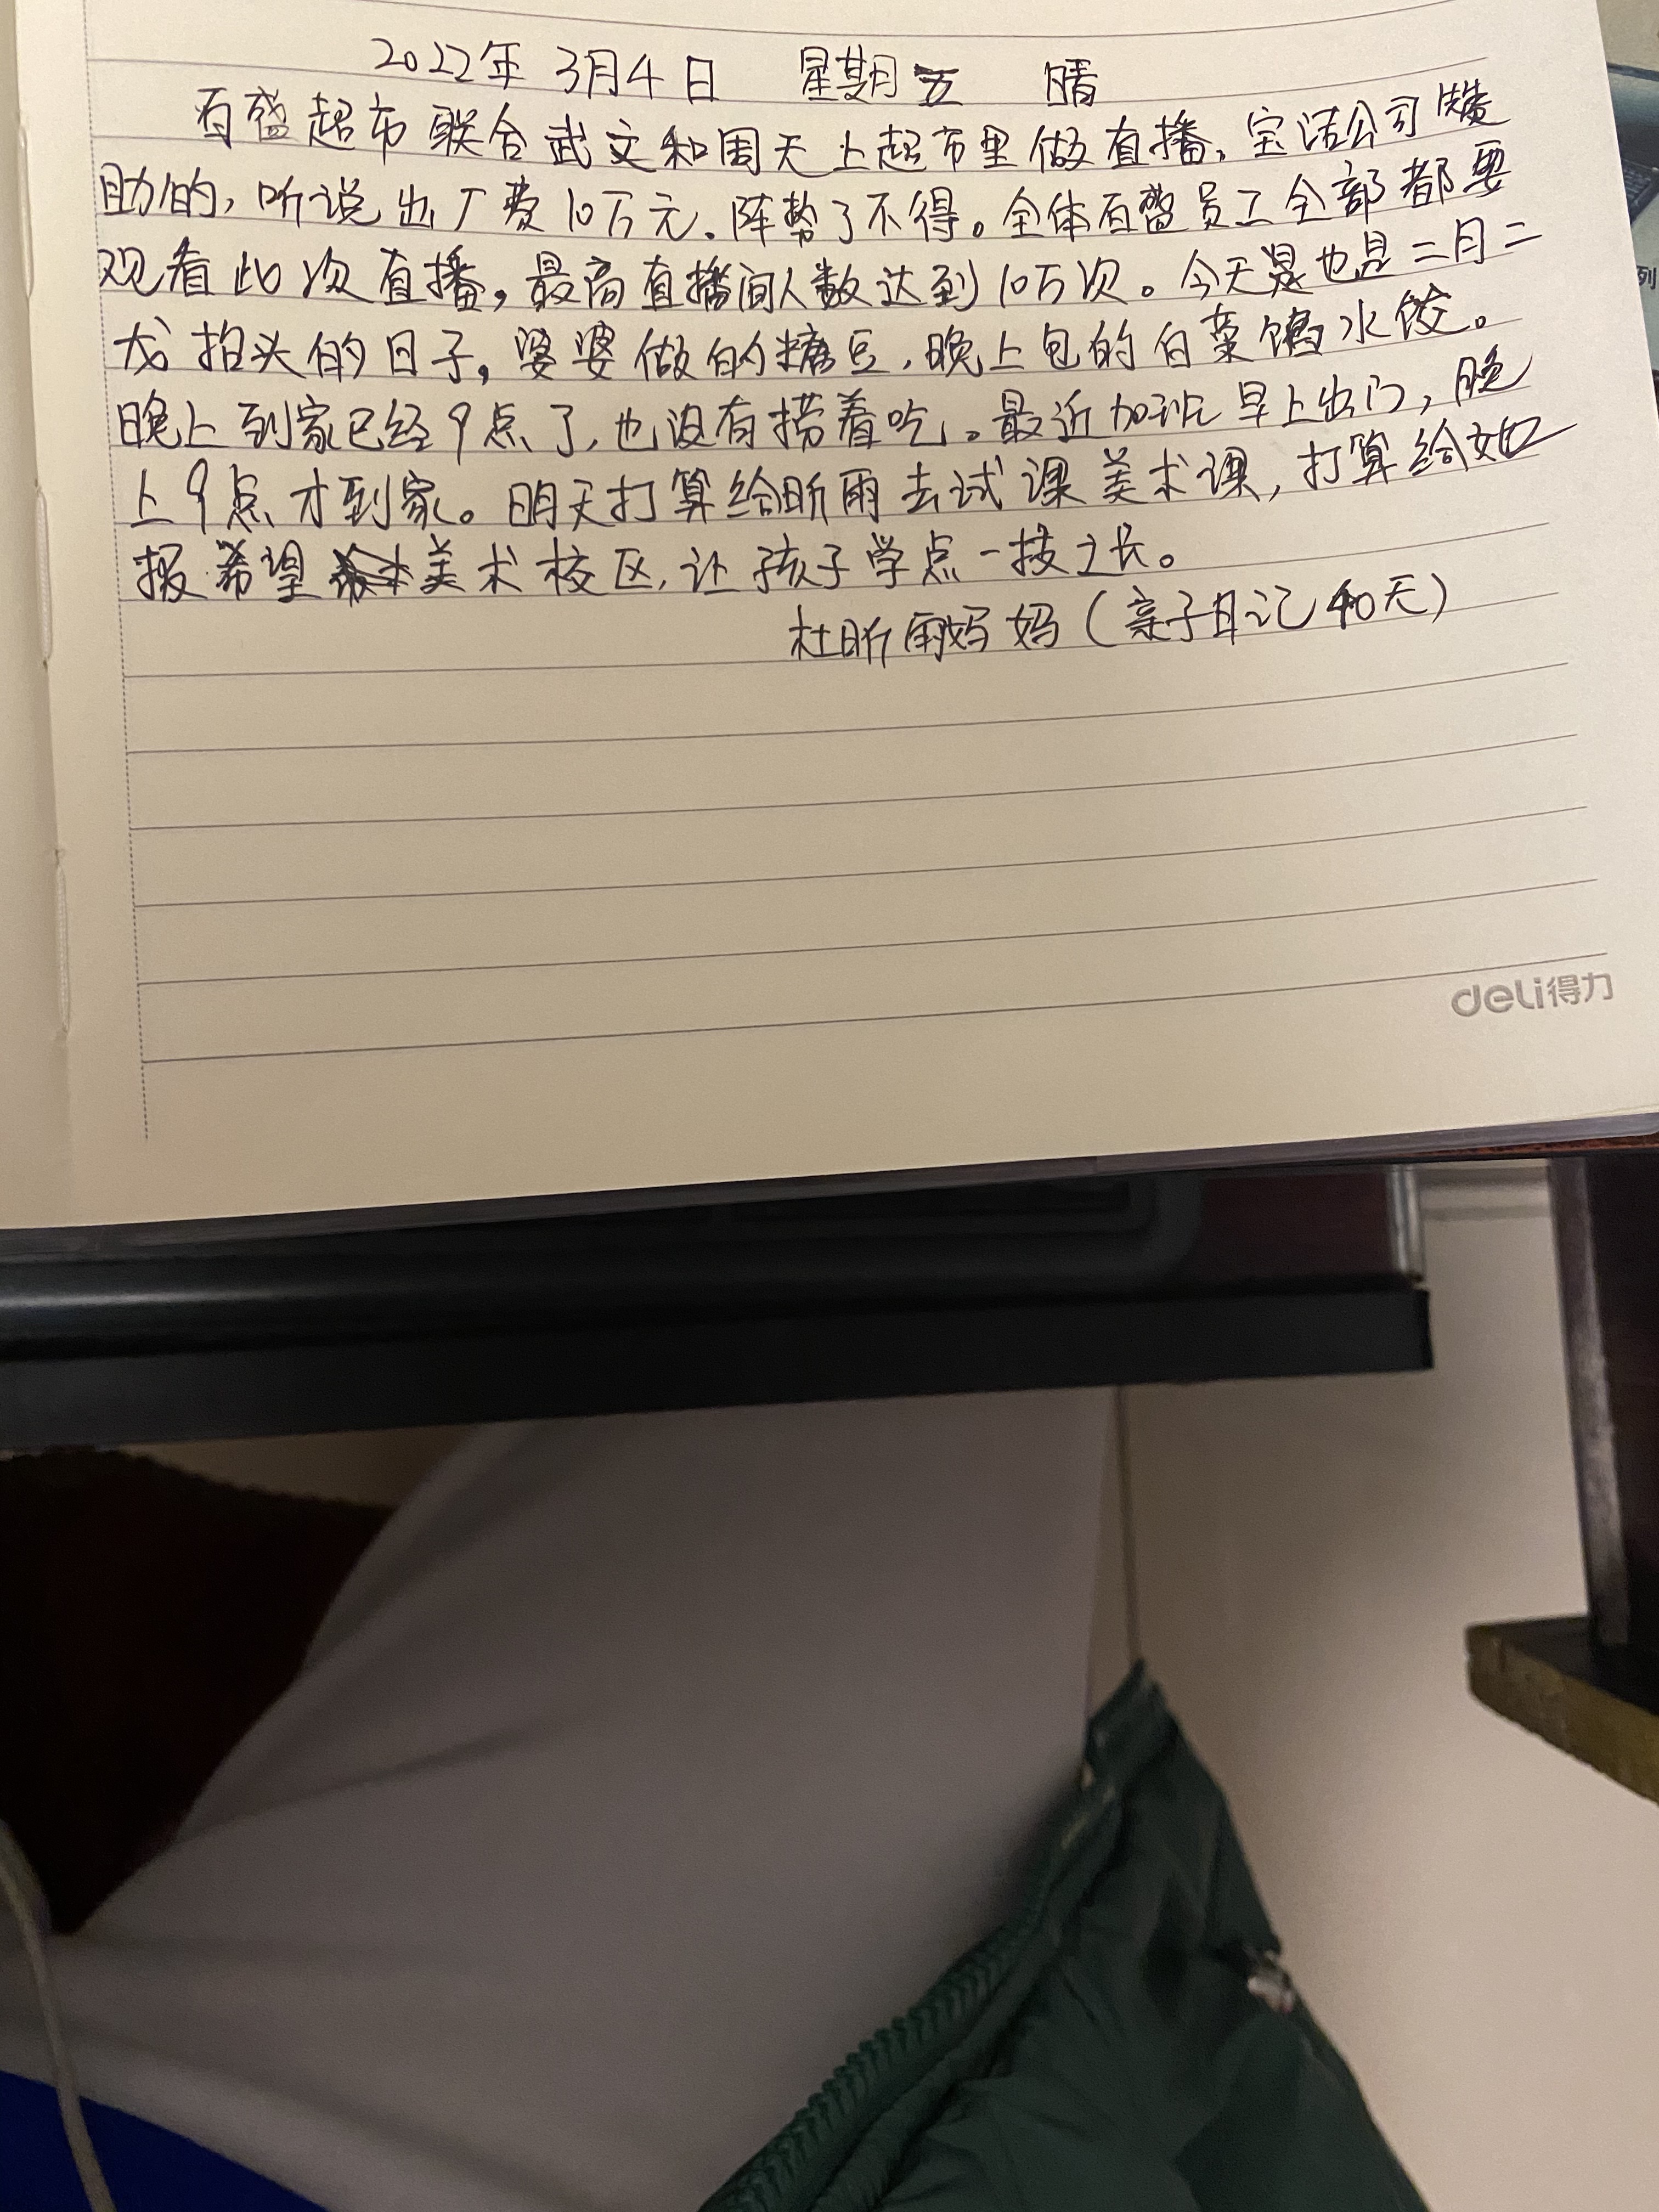 2022年 3月4日 星期五 晴
百盛超市联合武文和周天上超市里做直播,宝洁公司赞
助的,听说出厂费10万元.阵势了不得。全体百盛员工全部都要
观看此次直播,最高直播间人数达到10万次。今天是也是二月二
龙抬头的日子,婆婆做的糖豆,晚上包的白菜馅水饺。
晚上到家已经9点了,也没有捞着吃。最近加班早上出门,晚
上9点才到家。明天打算给昕雨去试课美术课,打算给她
报希望美术校区,让孩子学点一技之长。
杜昕雨妈妈(亲子日记40天)
deli得力
列